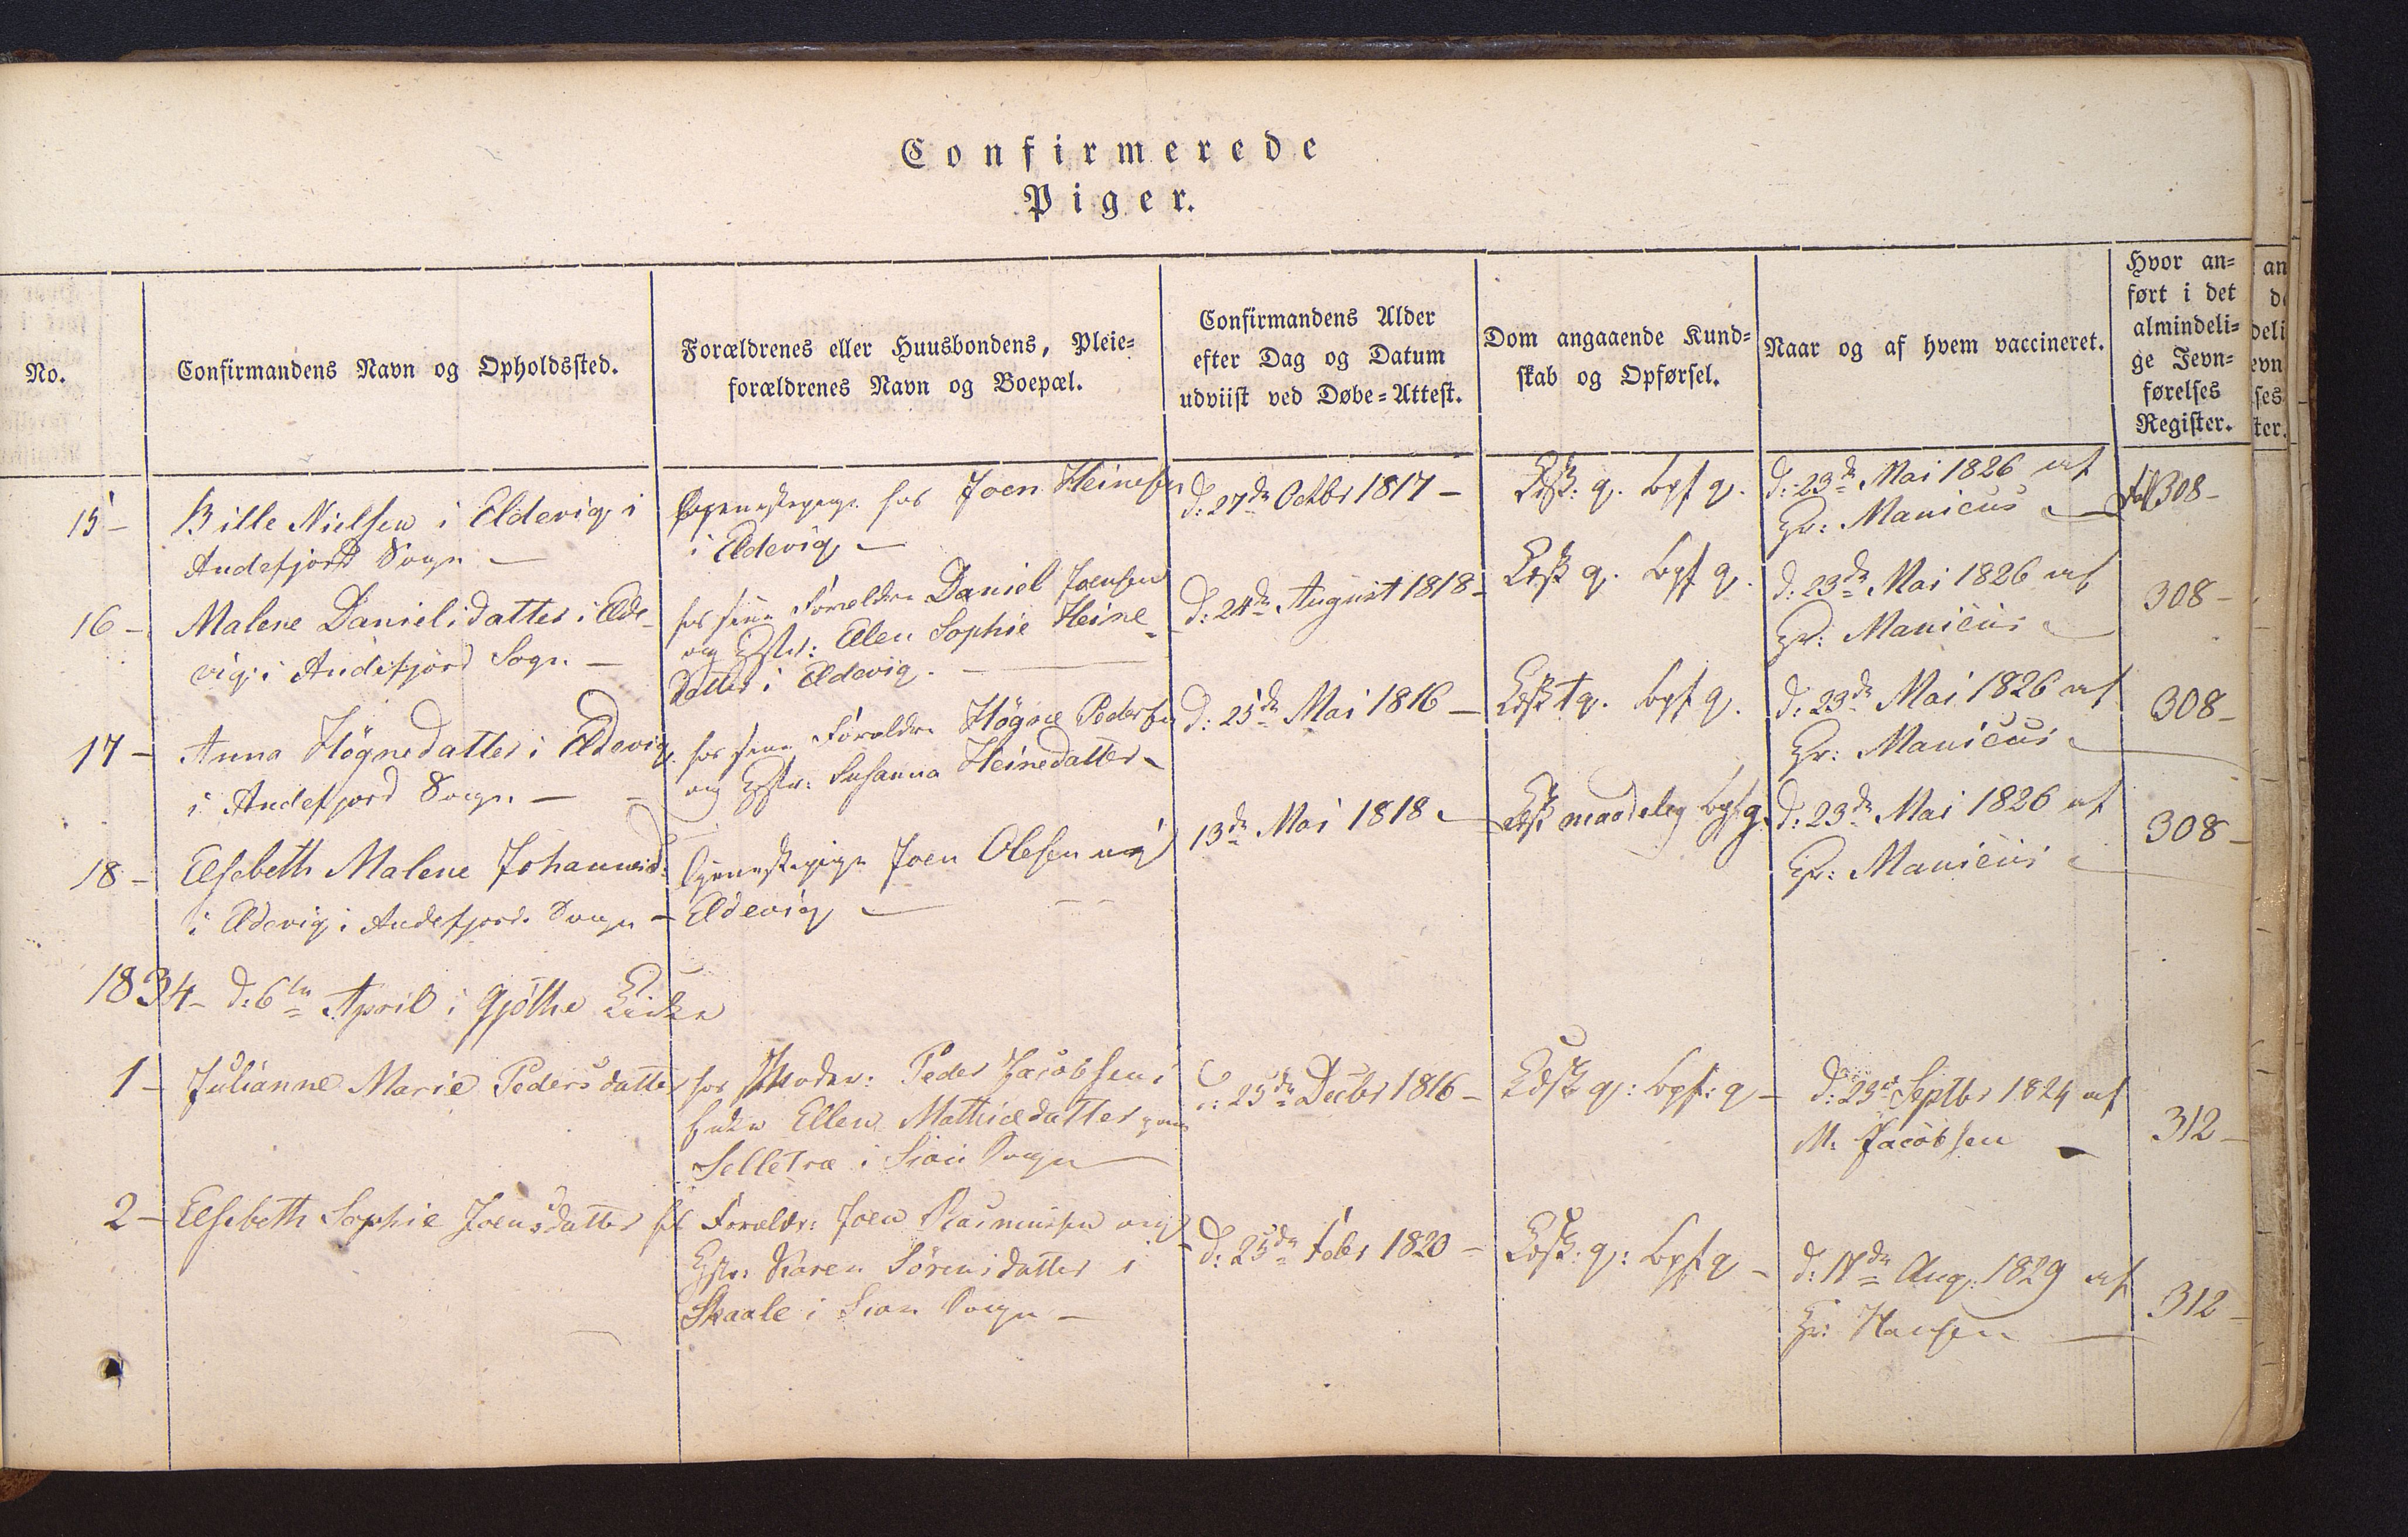 Confirmerede
Piger.
No.
Confirmandens Navn og Opholdssted.
Forældrenes eller Huusbondens, Pleie=
forældrenes Navn og Boepæl.
Confirmandens Alder
efter Dag og Datum
udviist ved Døbe=Attest.
Dom angaaende Kund=
skab og Opførsel.
Naar og af hvem vaccineret.
Hvor an=
ført i det
almindeli=
ge Jevn=
førelses
Register.
15 –
Bille Nielsen i Eldevig i
Andefjord Sogn –
Tjenestepige hos Joen Heinesen
i Eldevig –
d: 27de Octbr 1817 –
Kdsk: g. Opf g.
d: 23de Mai 1826 af
Hr: Manicus
308 –
16 –
Malene Danielsdatter i Elde-
vig i Andefjord Sogn –
hos sine Forældre Daniel Joensen
og Hstr: Ellen Sophie Heine-
datter i Eldevig. –
d: 24de August 1818 –
Kdsk g. Opf g.
d: 23de Mai 1826 af
Hr: Manicus
308 –
17 –
Anna Högnedatter i Eldevig
i Andefjord Sogn. –
hos sine Forældre Högne Pedersen
og Hstr: Susanna Heinedatter –
d: 25de Mai 1816 –
Kdsk tg. Opf g.
d: 23de Mai 1826 af
Hr: Manicus
308 –
18 –
Elsebeth Malene Johannesd:
i Eldevig i Andefjords Sogn –
Tjenestepige Joen Olesen
Eldevig –
13de Mai 1818
Kdsk maadelig Opf g.
d: 23de Mai 1826 af
Hr: Manicus
308 –
1834 – d: 6te April i Gjöthe Kirke
1 –
Julianne Marie Pedersdatter
hos Moder: Peder Jacobsens
Enke Ellen Mathiedatter paa
Selletræ i Siov Sogn
d: 25de Decbr 1816 –
Kdsk g: Opf: g –
d: 23de Septbr 1824 af
M. Jacobsen –
312 –
2 –
Elsebeth Sophie Joensdatter
Forældr: Joen Rasmussen og
Hstr: Karen Sörensdatter i
Skaale i Siov Sogn –
d: 25de Febr 1820 –
Kdsk: g: Opf g –
Aug: 1829 af
Hr: Hansen
312 –